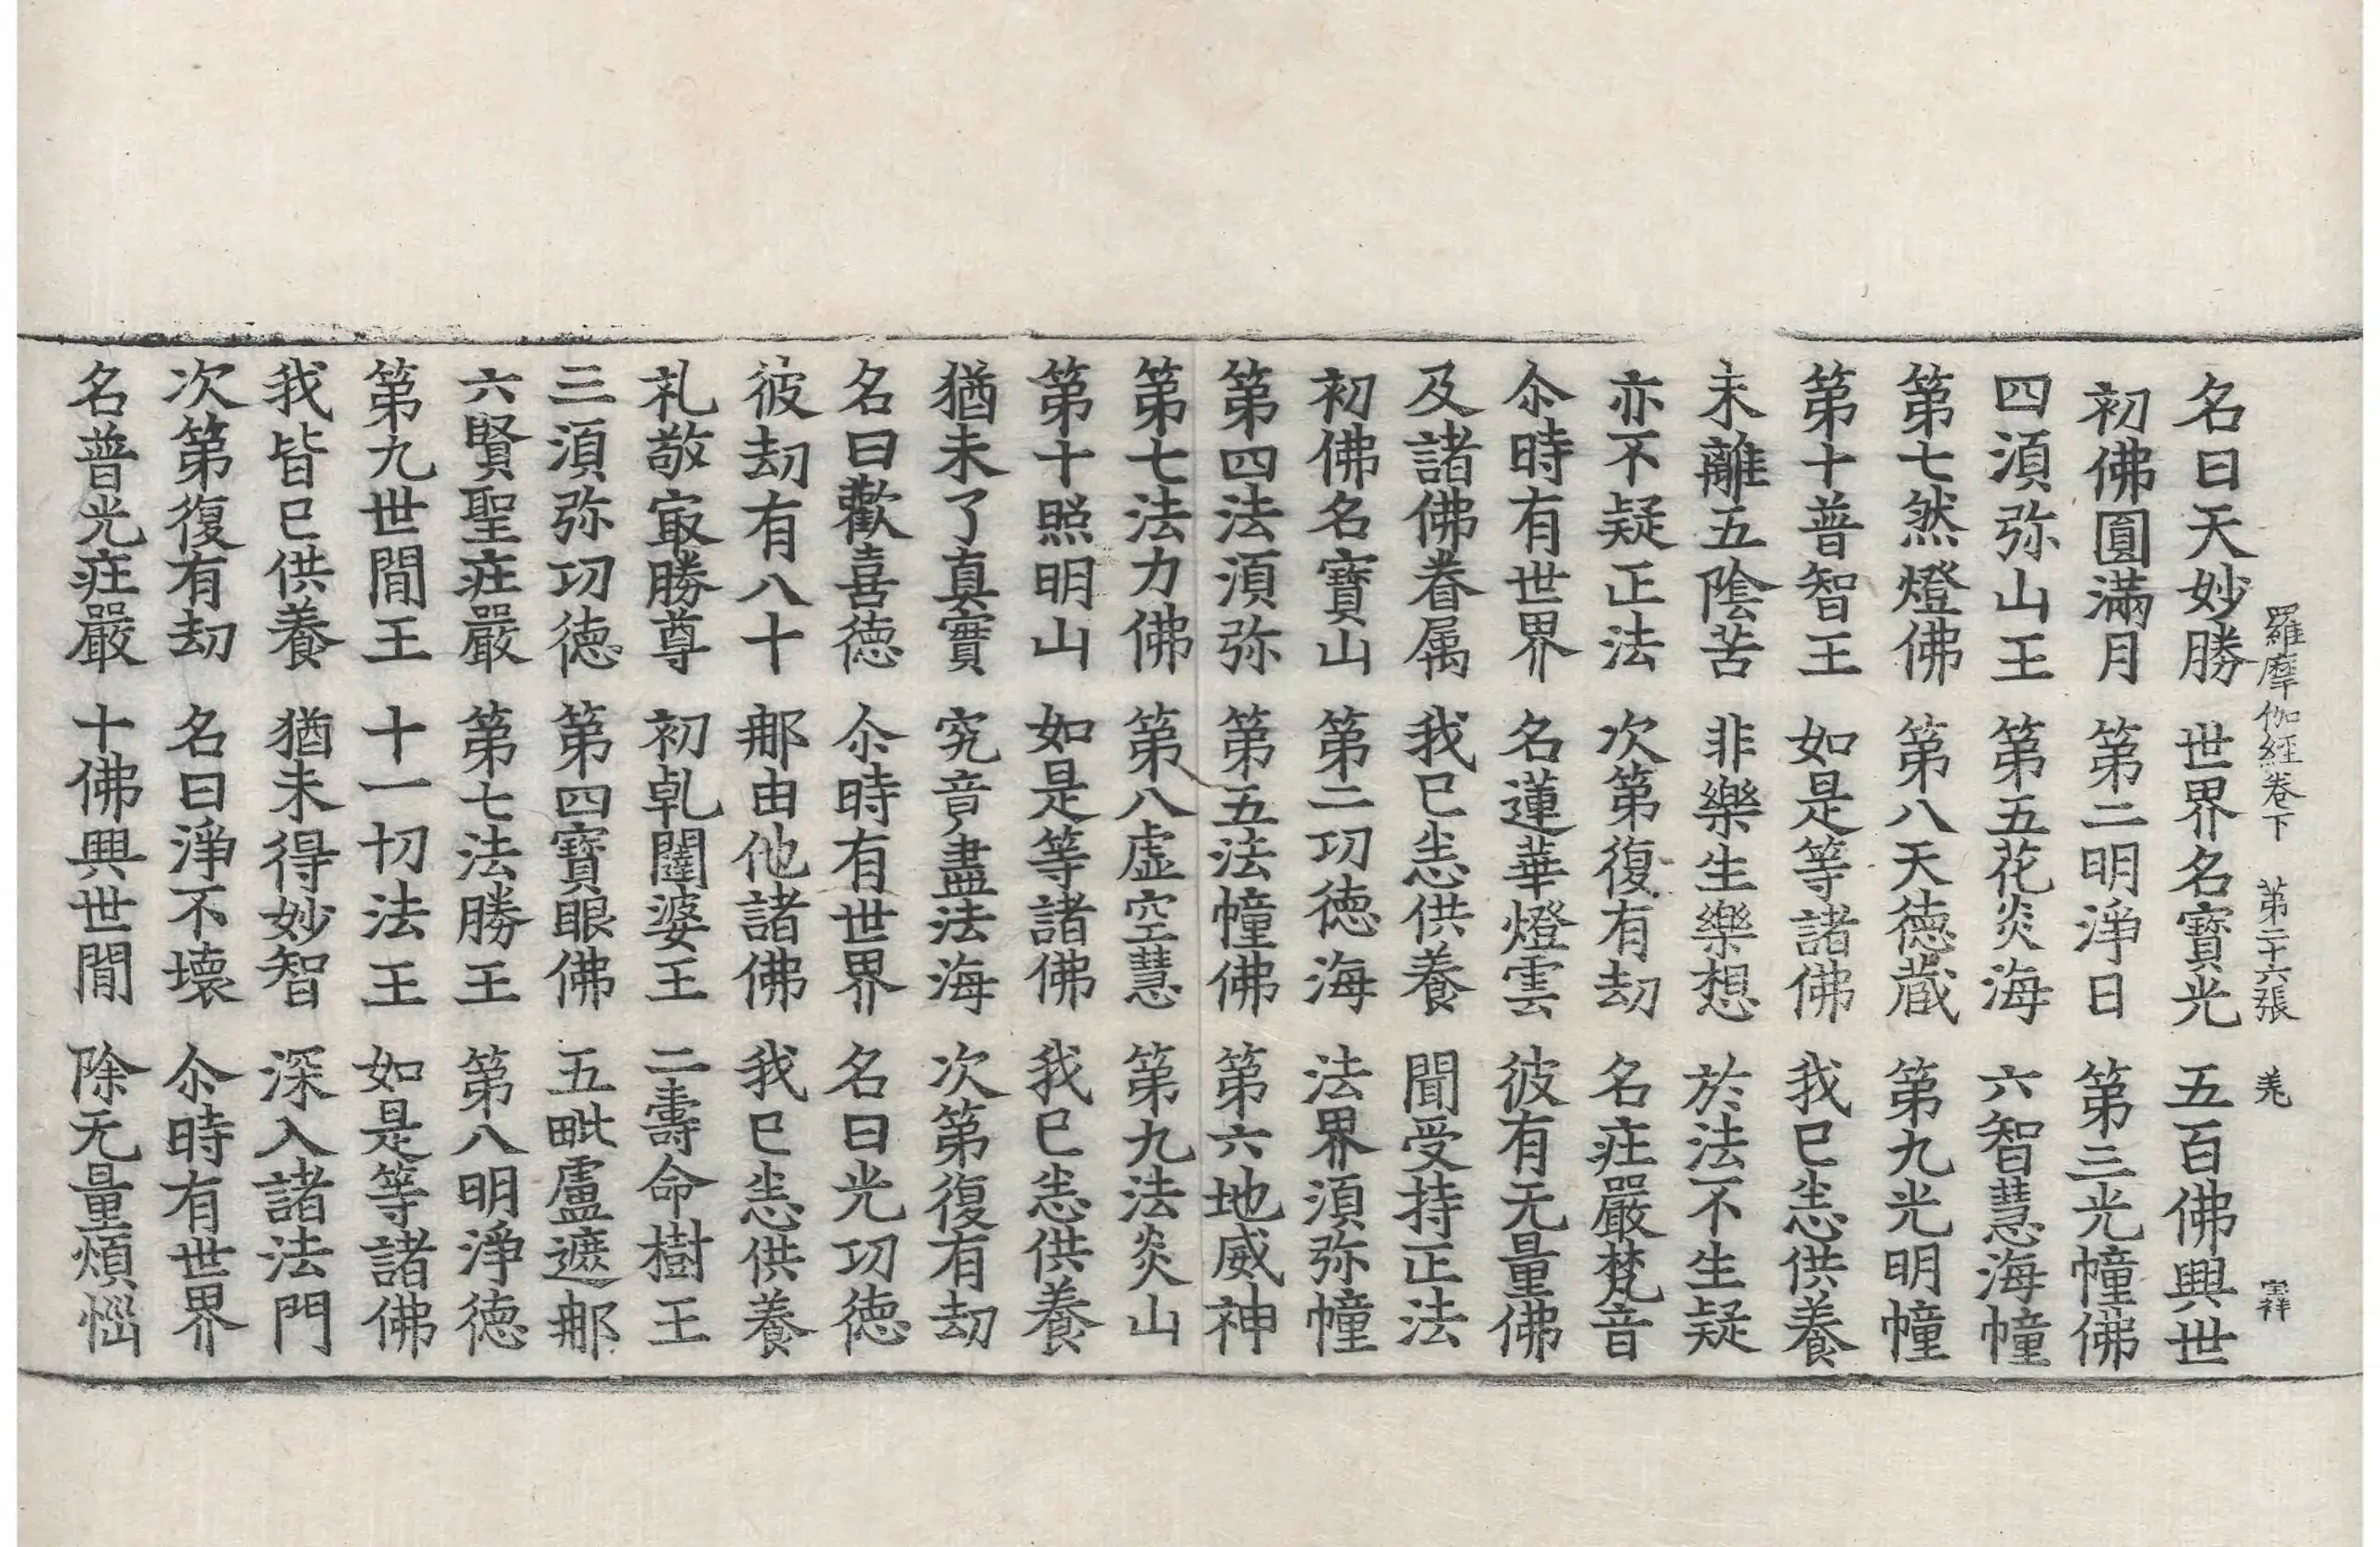 羅摩伽經卷下　第二十六張　羌　宝祥
名曰天妙勝　世界名寶光　五百佛興世
初佛圓滿月　第二明淨日　第三光幢佛
四須弥山王　第五花炎海　六智慧海幢
第七然燈佛　第八天德蔵　第九光明幢
第十普智王　如是等諸佛　我已悉供養
未離五陰苦　非樂生樂想　於法不生疑
亦不疑正法　次第復有劫　名庄嚴梵音
尒時有世界　名蓮華燈雲　彼有无量佛
及諸佛眷属　我已悉供養　聞受持正法
初佛名寶山　第二功徳海　法界須弥幢
第四法須弥　第五法幢佛　第六地威神
第七法力佛　第八虛空慧　第九法炎山
第十照明山　如是等諸佛　我已悉供養
猶未了真實　究竟盡法海　次第復有劫
名曰歡喜德　尒時有世界　名曰光功德
彼劫有八十　那由他諸佛　我已悉供養
礼敬冣勝尊　初乹闥婆王　二壽命樹王
三須弥功德　第四寶眼佛　五毗盧遮那
六賢聖庄嚴　第七法勝王　第八明淨德
第九世閒王　十一切法王　如是等諸佛
我皆已供養　猶未得妙智　深入諸法門
次第復有劫　名曰淨不壞　尒時有世界
名普光庄嚴　十佛興世閒　除无量煩惱